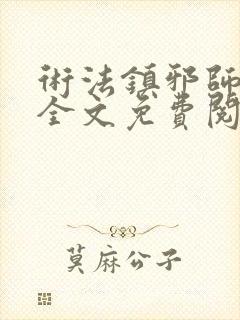 術法鎮邪師
全文免費閱
莫麻公子